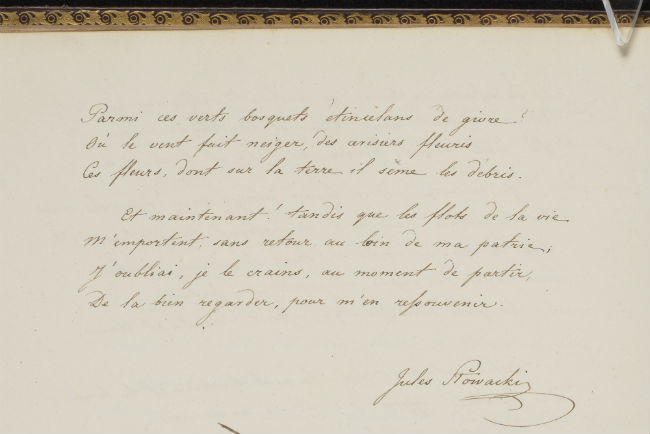 Parmi ces verts bosquets étincelans de givre!
Où le vent fait neiger, des cerisiers fleuris
Ces fleurs, dont sur la terre il sème les débris.
Et maintenant! tandis que les flots de la vie
M'emportent, sans retour au loin de ma patrie,
J'oubliai, je le crains, au moment de partir,
De la bien regarder, pour m'en ressouvenir.
Jules Słowacki